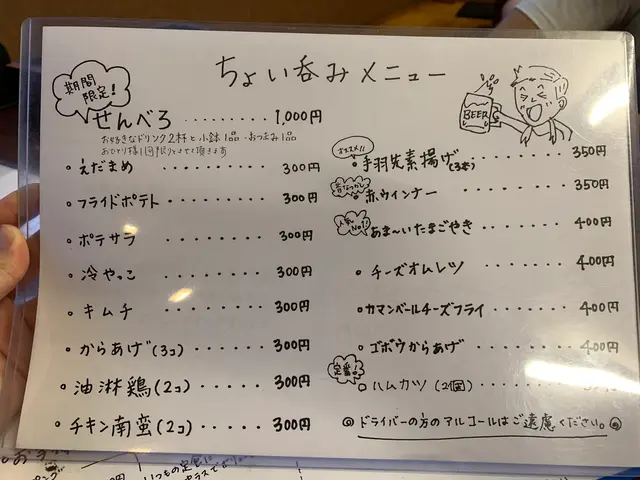 期間限定!
ちょい呑みメニュー
せんべろ ......... 1,000円
お好きなドリンク2杯と小鉢1品・おつまみ1品
おひとり様1回限りとさせて頂きます
・えだまめ ......... 300円
・フライドポテト ......... 300円
・ポテサラ ......... 300円
・冷やっこ ......... 300円
・キムチ ......... 300円
・からあげ(3コ) ...... 300円
・油淋鶏(2コ) ..... 300円
・チキン南蛮(2コ) ..... 300円
BEER
オススメ!!
・手羽先素揚げ(3本) ....... 350円
昔なつかし
・赤ウインナー ......... 350円
人気No.1!
・あま〜いたまごやき ...... 400円
・チーズオムレツ ....... 400円
・カマンベールチーズフライ ..... 400円
・ゴボウからあげ ....... 400円
定番!
・ハムカツ(2個) .......
◎ドライバーの方のアルコールはご遠慮ください。◎
いつもの定食に